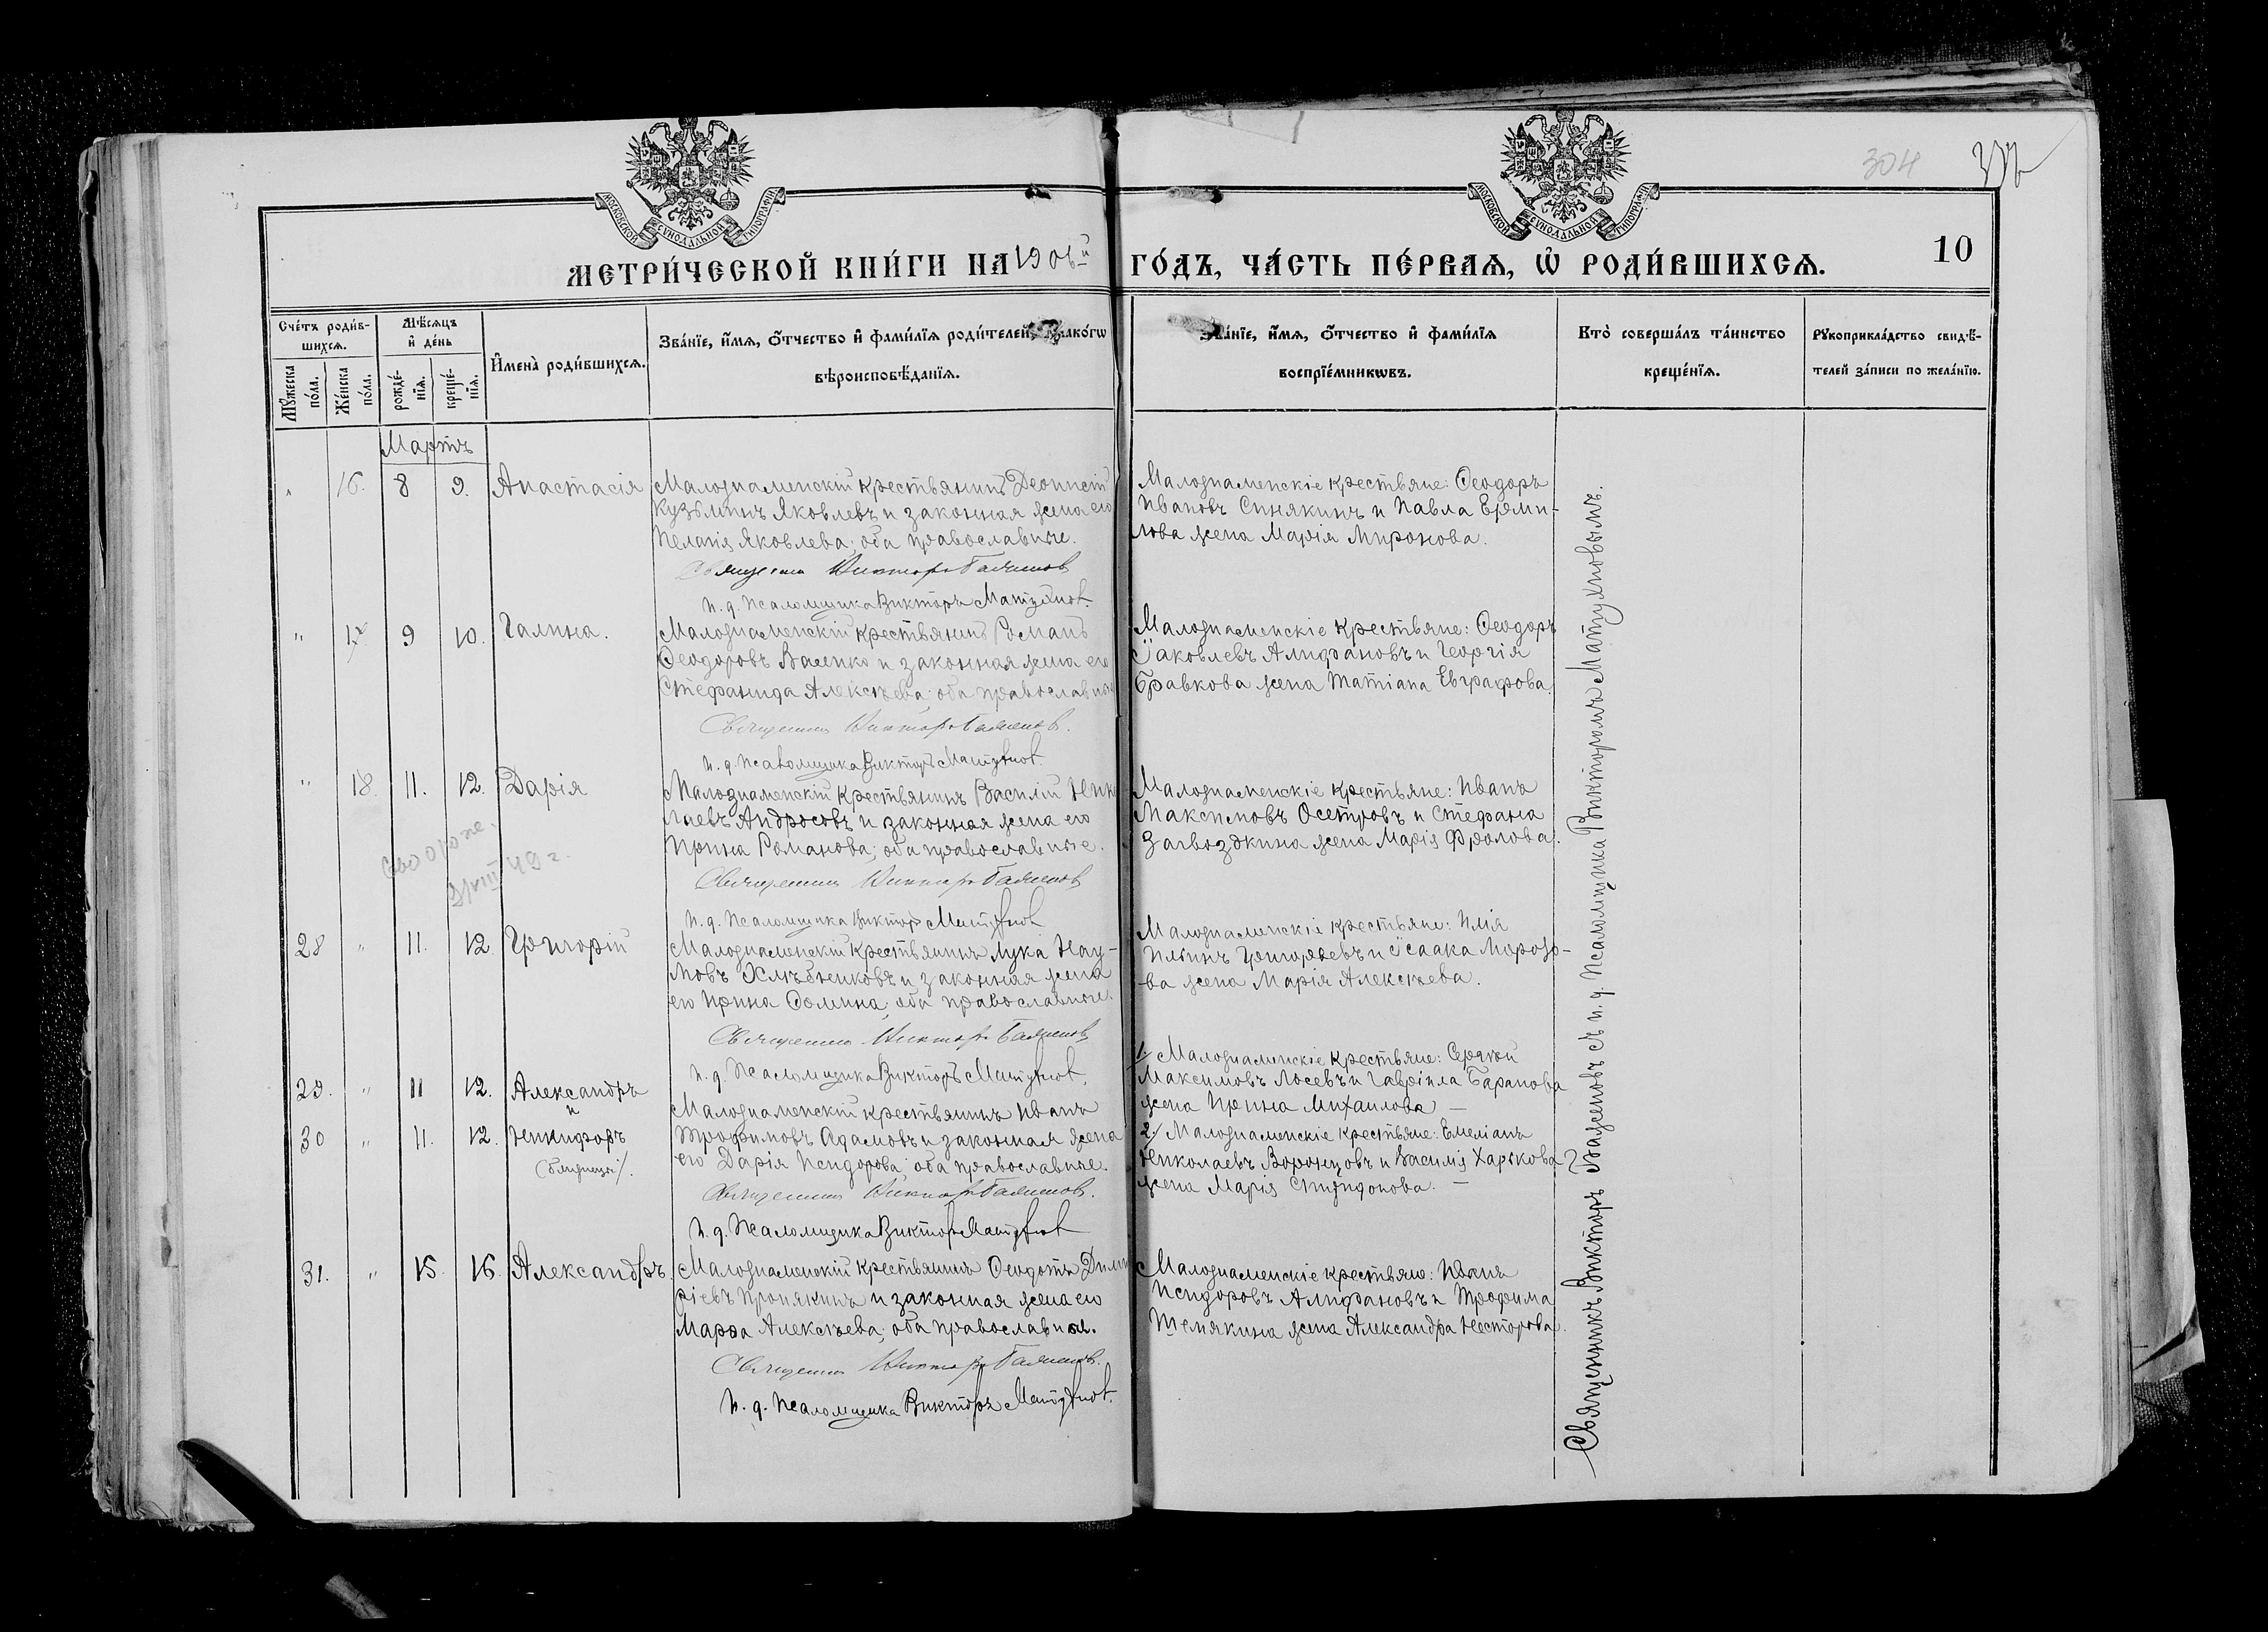 304
МОСКОВСКОЙ СѴНОДАЛЬНОЙ ТИПОГРАФІИ
МОСКОВСКОЙ СѴНОДАЛЬНОЙ ТИПОГРАФІИ
МЕТРИ́ЧЕСКОЙ КНИ́ГИ НА 1906й ГО́ДЪ, ЧА́СТЬ ПЕ́РВАЯ, Ѡ РОДИ́ВШИХСЯ.
10
Сче́тъ роди́в-
шихся.
Мѣ́сяцъ
и҆ де́нь
Мꙋ́жеска
по́ла.
Же́нска
по́ла.
рожде́-
нїя.
креще́-
нїя.
И҆мена̀ роди́вшихся.
Зва́нїе, и҆́мя, ѻ҆́тчество и҆ фами́лїя роди́телей, и҆ како́гѡ
вѣроисповѣ́данїя.
Зва́нїе, и҆́мя, ѻ҆́тчество и҆ фами́лїя
воспрїе́мникѡвъ.
Кто̀ соверша́лъ та́инство
креще́нїя.
Рꙋкоприкла́дство свидѣ́-
телей за́писи по жела́нїю.
Мартъ
" 16. 8 9. Анастасія
Малознаменскій крестьянинъ Деонисій
Кузьминъ Яковлевъ и законная жена его
Пелагія Яковлева; оба православные.
Священникъ Викторъ Баженовъ
И. д. Псаломщика Викторъ Матухновъ.
Малознаменскіе крестьяне: Ѳеодоръ
Ивановъ Синякинъ и Павла Ерми-
лова жена Марія Миронова.
" 17 9 10. Галина.
Малознаменскій крестьянинъ Романъ
Ѳеодоровъ Валенко и законная жена его
Стефанида Алексѣева; оба православные
Священникъ Викторъ Баженовъ.
И. д. Псаломщика Викторъ Матухновъ.
Малознаменскіе крестьяне: Ѳеодоръ
Іаковлевъ Алифановъ и Георгія
Бравкова жена Татіана Евграфова.
" 18. 11. 12. Дарія
Малознаменскій крестьянинъ Василій Нико
лаевъ Андросовъ и законная жена его
Ирина Романова; оба православные.
Священникъ Викторъ Баженовъ
И. д. Псаломщика Викторъ Матухновъ
Малознаменскіе крестьяне: Иванъ
Максимовъ Осетровъ и Стефана
Загвоздкина жена Марія Фролова.
VIII 49 г.
28 " 11. 12 Григорій
Малознаменскій крестьянинъ Лука Нау-
мовъ Хлѣбниковъ и законная жена
его Ирина Ѳомина; оба православные.
Священникъ Викторъ Баженовъ
И. д. Псаломщика Викторъ Матухновъ.
Малознаменскіе крестьяне: Илія
Ильинъ Григорьевъ и Ісаака Морозо-
ва жена Марія Алексѣева.
29. " 11 12. Александръ
и
30 " 11. 12. Никифоръ
(близнецы).
Малознаменскій крестьянинъ Иванъ
Трофимовъ Адамовъ и законная жена
его Дарія Исидорова; оба православные.
Священникъ Викторъ Баженовъ.
И. д. Псаломщика Викторъ Матухновъ
1. Малознаменскіе крестьяне: Сергѣй
Максимовъ Лосевъ и Гавріила Баранова
жена Ирина Михаилова —
2. Малознаменскіе крестьяне: Емеліанъ
Николаевъ Воронцовъ и Василія Харькова
жена Марія Спиридонова. —
31. " 15. 16. Александръ.
Малознаменскій крестьянинъ Ѳеодотъ Дими
ріевъ Пронякинъ и законная жена его
Марѳа Алексѣева; оба православные.
Священникъ Викторъ Баженовъ.
И. д. Псаломщика Викторъ Матухновъ.
Малознаменскіе крестьяне: Иванъ
Исидоровъ Алифановъ и Трофима
Шемякина жена Александра Несторова.
Священникъ Викторъ Баженовъ съ и. д. Псаломщика Викторомъ Матухновымъ.